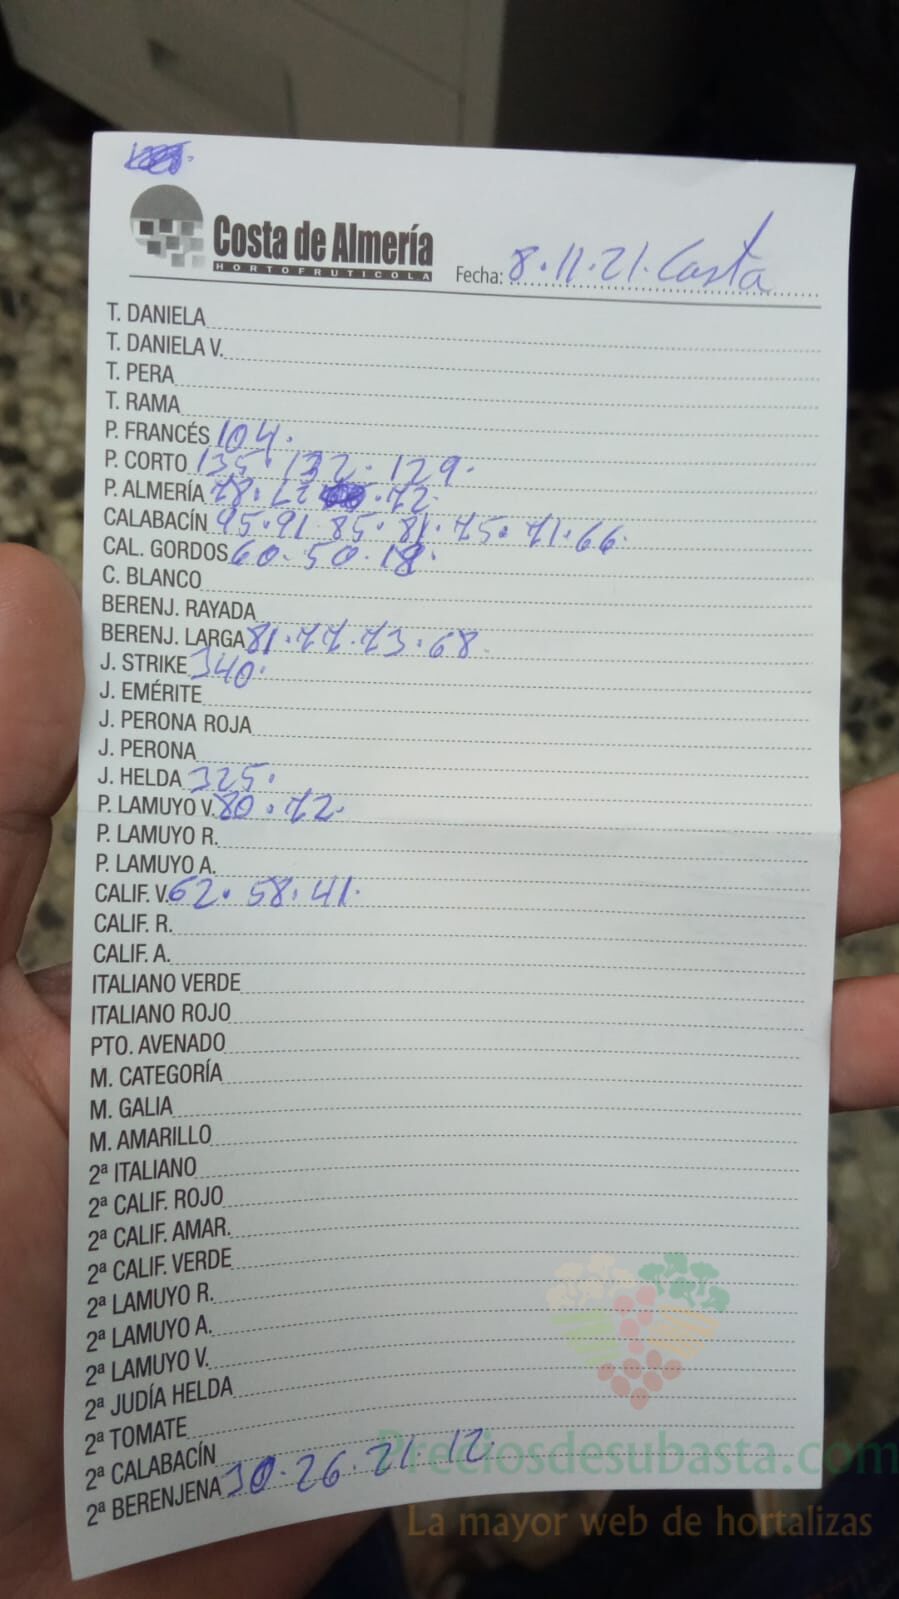 Costa de Almería
HORTOFRUTICOLA
Fecha: 8.11.21. Costa
T. DANIELA
T. DANIELA V.
T. PERA
T. RAMA
P. FRANCÉS 104.
P. CORTO 135. 132. 129.
P. ALMERÍA 78. 72.
CALABACÍN 95.91 85.81.75.71.66.
CAL. GORDOS 60.50.18.
C. BLANCO
BERENJ. RAYADA
BERENJ. LARGA 81.77.73.68.
J. STRIKE 340.
J. EMÉRITE
J. PERONA ROJA
J. PERONA
J. HELDA 325.
P. LAMUYO V. 80.72.
P. LAMUYO R.
P. LAMUYO A.
CALIF. V. 62. 58. 41.
CALIF. R.
CALIF. A.
ITALIANO VERDE
ITALIANO ROJO
PTO. AVENADO
M. CATEGORÍA
M. GALIA
M. AMARILLO
2ª ITALIANO
2ª CALIF. ROJO
2ª CALIF. AMAR.
2ª CALIF. VERDE
2ª LAMUYO R.
2ª LAMUYO A.
2ª LAMUYO V.
2ª JUDÍA HELDA
2ª TOMATE
2ª CALABACÍN
2ª BERENJENA 30.26.21.12.
Preciosdesubasta.com
La mayor web de hortalizas